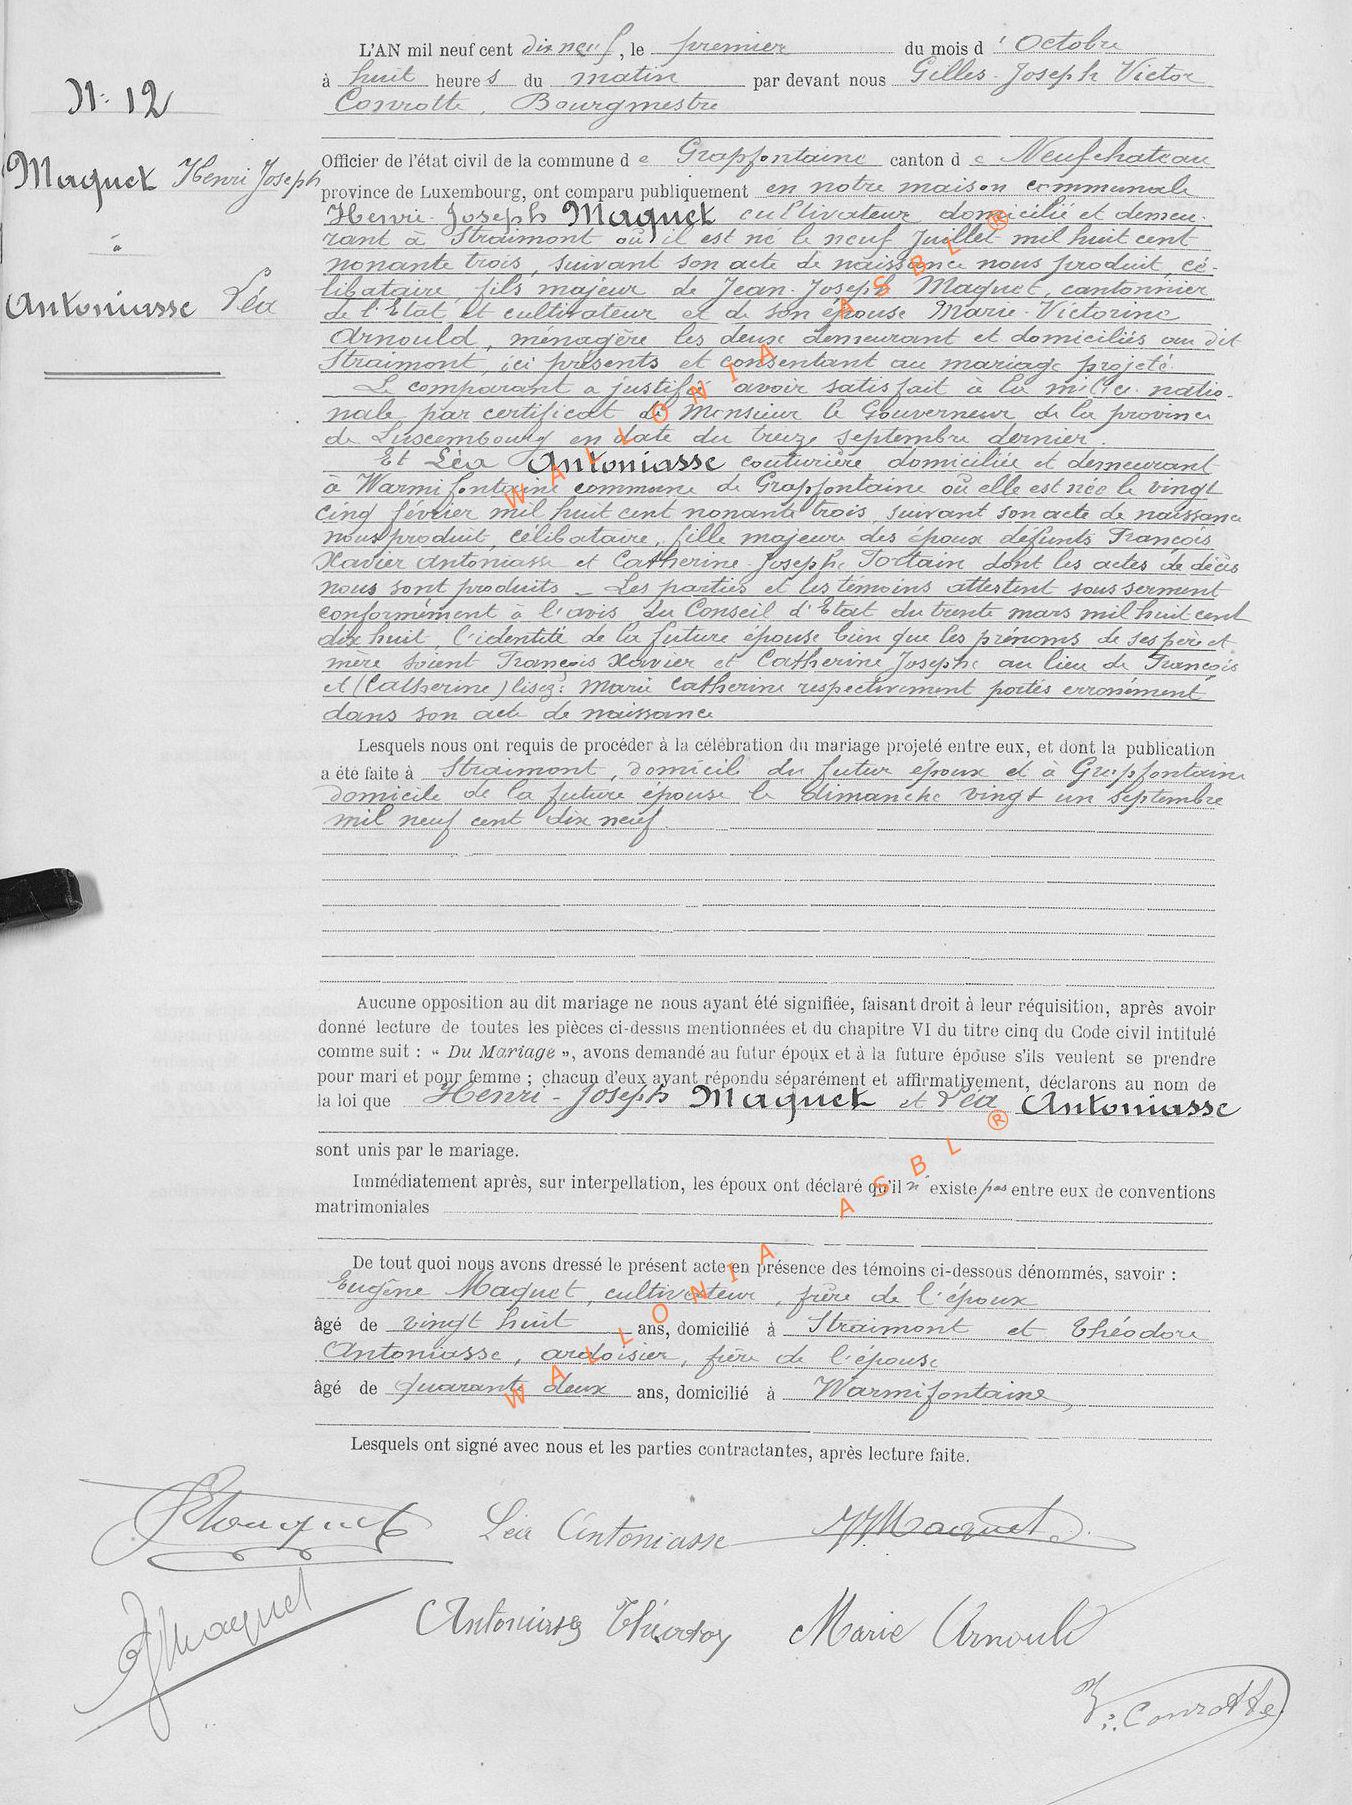 L'AN mil neuf cent dix neuf, le premier du mois d'Octobre
à huit heures du matin par devant nous Gilles-Joseph Victor
Conrotte, Bourgmestre
N: 12
Maquet Henri Joseph
à
Antoniasse Léa
Officier de l'état civil de la commune de Grapfontaine canton de Neufchateau
province de Luxembourg, ont comparu publiquement en notre maison communale
Henri-Joseph Maquet cultivateur domicilié et demeu-
rant à Straimont où il est né le neuf Juillet mil huit cent
nonante trois, suivant son acte de naissance nous produit, cé-
libataire, fils majeur de Jean-Joseph Maquet, cantonnier
de l'Etat et cultivateur et de son épouse Marie-Victorine
Arnould, ménagère les deux demeurant et domiciliés au dit
Straimont, ici présents et consentant au mariage projeté.
Le comparant a justifié avoir satisfait à la milice natio-
nale par certificat de Monsieur le Gouverneur de la province
de Luxembourg en date du treize septembre dernier.
Et Léa Antoniasse couturière domiciliée et demeurant
à Warmifontaine commune de Grapfontaine où elle est née le vingt
cinq février mil huit cent nonante trois, suivant son acte de naissance
nous produit, célibataire, fille majeure des époux défunts François
Xavier Antoniasse et Catherine Josephe Tortain dont les actes de décès
nous sont produits - Les parties et les témoins attestent sous serment
conformément à l'avis du Conseil d'Etat du trente mars mil huit cent
dix huit, l'identité de la future épouse bien que les prénoms de ses père et
mère soient François Xavier et Catherine Josephe au lieu de François
et (Catherine) lisez: Marie Catherine respectivement portés erronément
dans son acte de naissance
Lesquels nous ont requis de procéder à la célébration du mariage projeté entre eux, et dont la publication
a été faite à Straimont, domicile du futur époux et à Grapfontaine
domicile de la future épouse le dimanche vingt un septembre
mil neuf cent dix neuf.
Aucune opposition au dit mariage ne nous ayant été signifiée, faisant droit à leur réquisition, après avoir
donné lecture de toutes les pièces ci-dessus mentionnées et du chapitre VI du titre cinq du Code civil intitulé
comme suit : « Du Mariage », avons demandé au futur époux et à la future épouse s'ils veulent se prendre
pour mari et pour femme ; chacun d'eux ayant répondu séparément et affirmativement, déclarons au nom de
la loi que Henri-Joseph Maquet et Léa Antoniasse
sont unis par le mariage.
Immédiatement après, sur interpellation, les époux ont déclaré qu'il n'existe pas entre eux de conventions
matrimoniales
De tout quoi nous avons dressé le présent acte en présence des témoins ci-dessous dénommés, savoir :
Eugène Maquet, cultivateur, frère de l'époux
âgé de vingt huit ans, domicilié à Straimont et Théodore
Antoniasse, ardoisier, frère de l'épouse
âgé de quarante deux ans, domicilié à Warmifontaine,
Lesquels ont signé avec nous et les parties contractantes, après lecture faite.
Maquet Léa Antoniasse JJMaquet
Maquet Antoniasse Théodor Marie Arnould
V: Conrotte
WALLONIA ASBL ®
WALLONIA ASBL ®